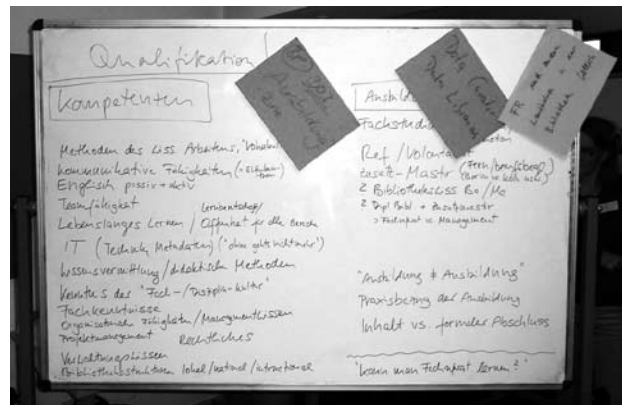 Qualifikation
Kompetenzen
Methoden des wiss. Arbeitens,
kommunikative Fähigkeiten
Englisch passiv + aktiv
Teamfähigkeit
Lebenslanges Lernen / Offenheit für alle Bereiche
IT (Technik, Metadaten) ("ohne gehts nicht mehr")
Wissensvermittlung / didaktische Methoden
Kenntnis der "Fach-/Disziplin-Kultur"
Fachkenntnisse
Organisatorische Fähigkeiten / Managementwissen
Projektmanagement Rechtliches
Verwaltungswissen
Bibliotheksstrukturen lokal / national / international
Ausbildung
Data
Data Librarian
FR und man
Fachstudium
Ref / Volontariat
Zusatz-Mastr (Fern/berufsbegl.)
2 Bibliothekswiss Ba / Ma
? Dipl Bibl. +
> Fachreferat vs Management
"Ausbildung ≠ Ausbildung"
Praxisbezug der Ausbildung
Inhalt vs. formaler Abschluss
"kann man Fachreferat lernen?"